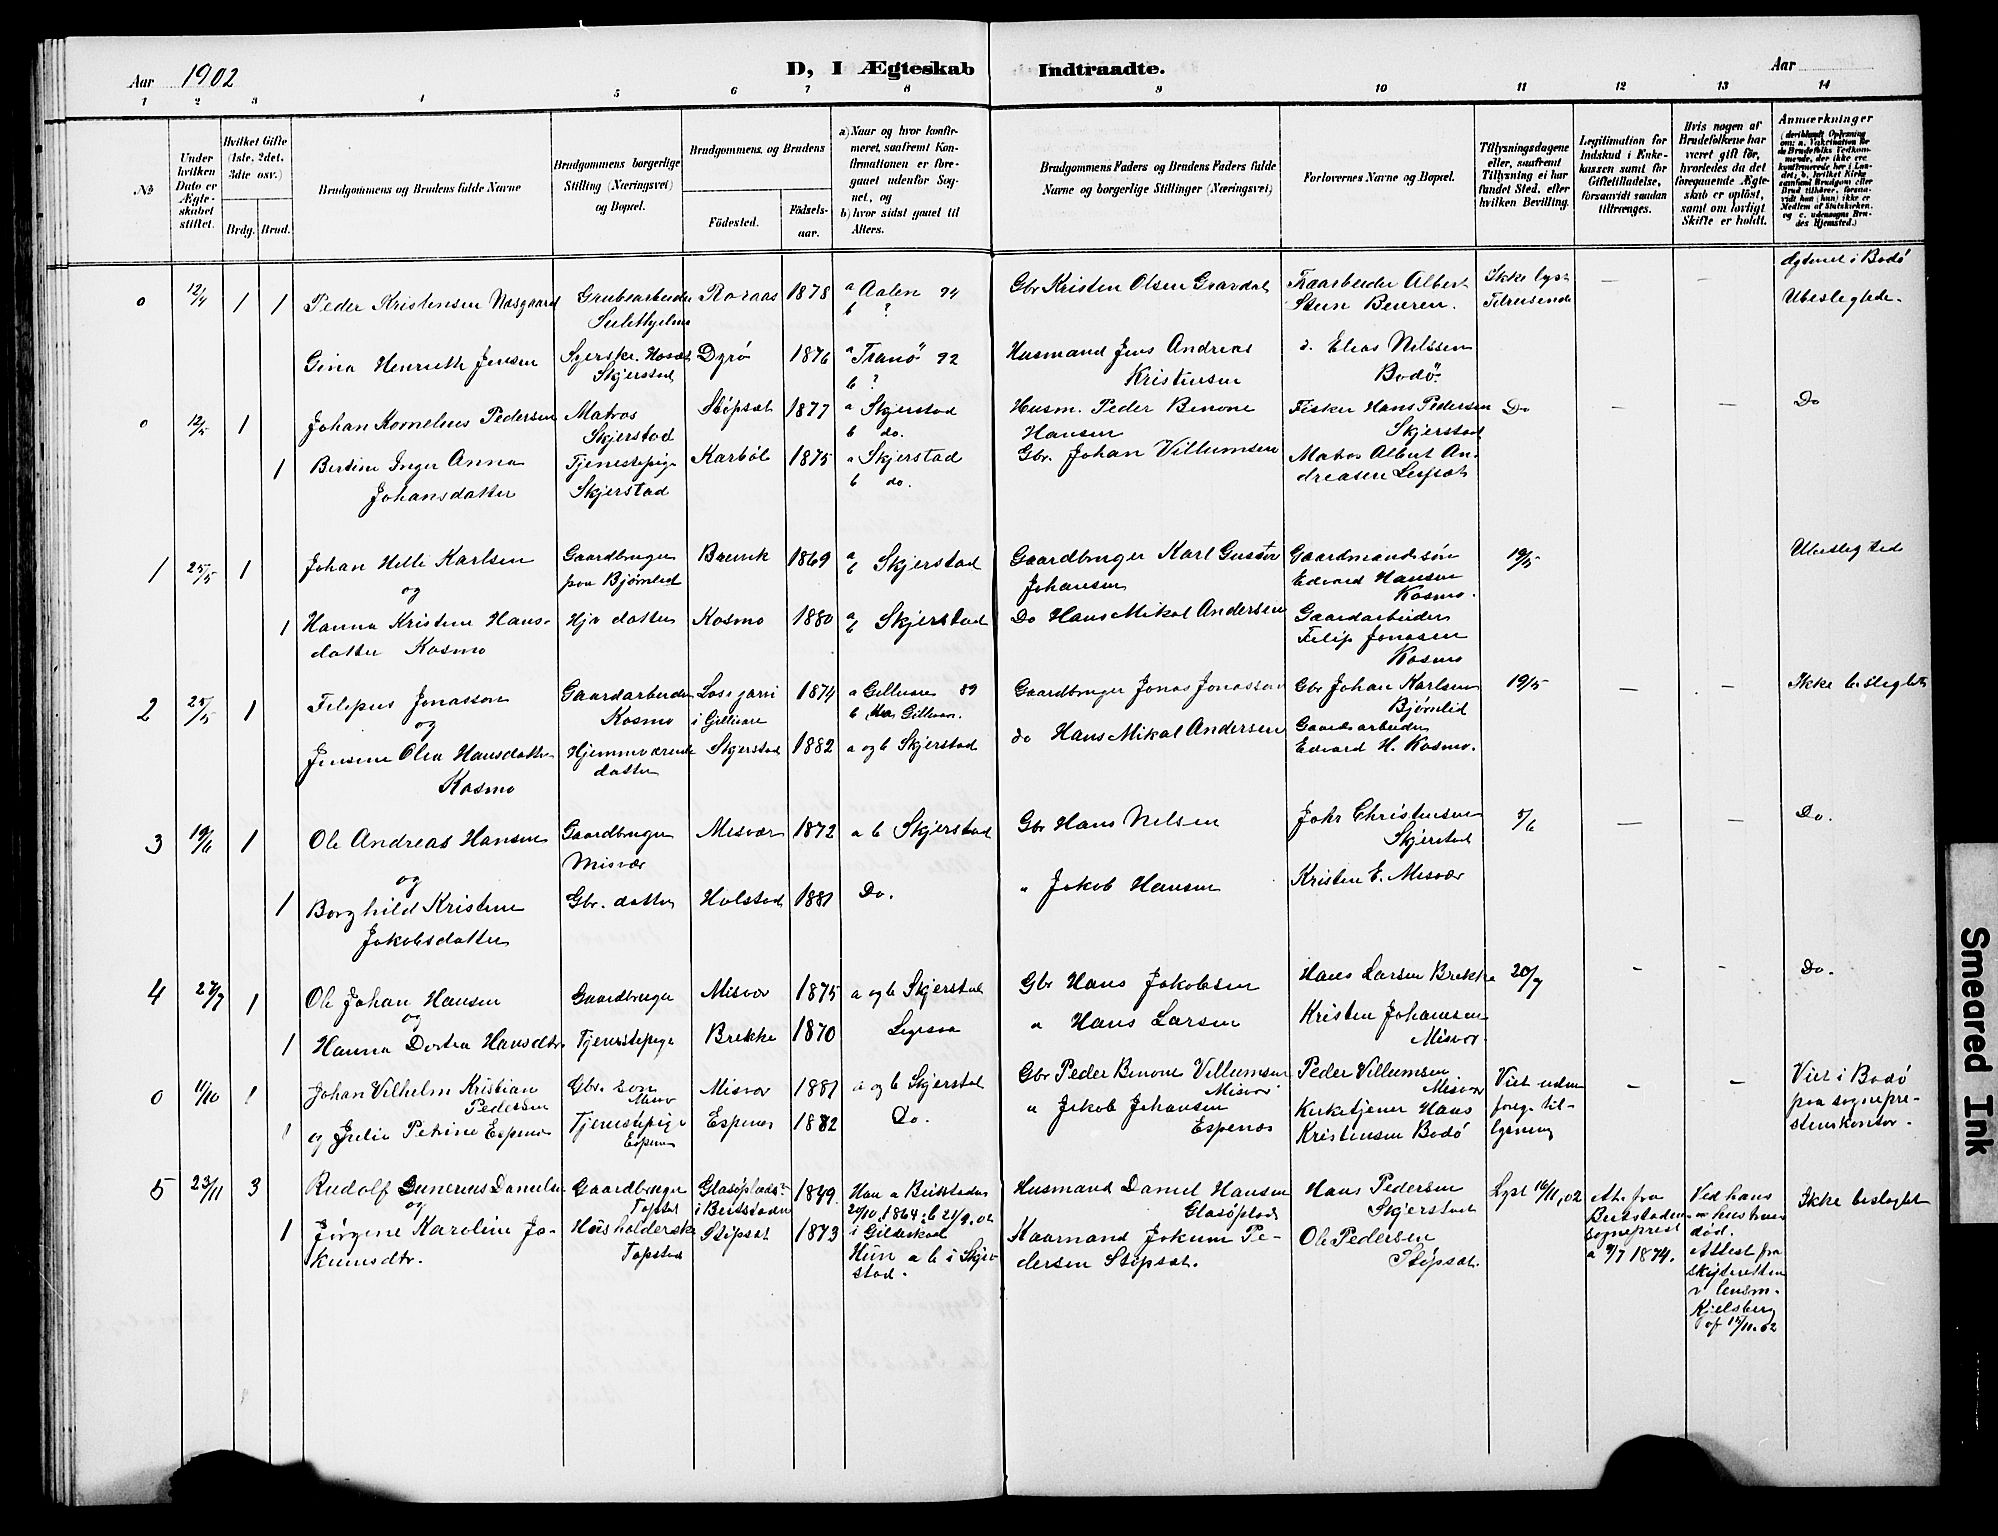 Aar 1902
D, I Ægteskab Indtraadte.
Aar
1 2 3 4 5 6 7 8 9 10 11 12 13 14
No
Under hvilken Dato er Ægteskabet stiftet.
Hvilket Gifte (1ste, 2det, 3die osv.)
Brdg. Brud.
Brudgommens og Brudens fulde Navne
Brudgommens borgerlige Stilling (Næringsvei) og Bopæl.
Brudgommens, og Brudens
Fødested.
Fødselsaar.
a) Naar og hvor konfirmeret, saafremt Konfirmationen er foregaaet udenfor Sognet, og
b) hvor sidst gaaet til Alters.
Brudgommens Faders og Brudens Faders fulde Navne og borgerlige Stillinger (Næringsvei)
Forlovernes Navne og Bopæl.
Tillysningsdagene eller, saafremt Tillysning ei har fundet Sted, efter hvilken Bevilling.
Legitimation for Indskud i Enkekassen samt for Giftetilladelse, forsaavidt saadan tiltrænges.
Hvis nogen af Brudefolkene har været gift før, hvorledes da det foregaaende Ægteskab er opløst, samt om lovligt Skifte er holdt.
Anmærkninger
(deriblandt Oplysning om: a. Vakcination for de Brudefolks Vedkommende, der ikke ere konfirmerede her i Landet; b. hvilket Kirkesamfund Brudgom eller Brud tilhører, forsaavidt han (hun) ikke er Medlem af Statskirken, og c. udensogns Brudes Hjemsted.)
0 12/4 1 1 Peder Kristensen Næsgaard Grubearbeider Sulithjelma Roraas 1878 a Aalen 94 b ? Gbr Kristen Olsen Graadal Traarbeider Albert Steen Beieren. Ikke lyst Tilreisende — — Ægteviet i Bodö Ubeslegtede.
Gina Henriette Jensen Skjerstad Dyrö 1876 a Tranö 92 b ? Husmand Jens Andreas Kristensen Elias Nilssen Bodö.
0 12/5 1 Johan Kornelius Pedersen Matros Skjerstad Støpsat 1877 a Skjerstad b do. Husm. Peder Benone Hansen Fisker Hans Pedersen Skjerstad Do — — Do
1 Bertine Inger Anna Johansdatter Tjenestepige Skjerstad Karbøl 1875 a Skjerstad b do. Gbr. Johan Villumsen Matros Albert Andreasen
1 25/5 1 Johan Helli Karlsen Gaardbruger paa Bjørnlid Breivik 1869 a b Skjerstad Gaardbruger Karl Gustav Johansen Gaardmandssøn Edvard Hansen Kosmo. 19/5 Ubeslegted
og
1 Hanna Kristine Hansdatter Kosmo Hj. datter Kosmo 1880 a b Skjerstad Do Hans Mikal Andersen Gaardarbeider Filip Jonasen Kosmo
2 25/5 1 Filipus Jonasson Gaardarbeider Kosmo i Gillivare 1874 a Gellivare 89 b Gellivare. Gaardbruger Jonas Jonasson Gbr Johan Karlsen Bjørnlid 19/5 — — Ikke beslegtet
og
Jensine Olea Hansdatter Kosmo Hjemmeværende datter Skjerstad 1882 a og b Skjerstad do Hans Mikal Andersen Gaardsarbeider Edvard H. Kosmo.
3 19/6 1 Ole Andreas Hansen Gaardbruger Misvær Misvær 1872 a b Skjerstad Gbr Hans Nilsen Johs Christensen Skjerstad 8/6 — — Do.
og
1 Borghild Kristine Jakobsdatter Gbr. datter Holstad 1881 Do. " Jakob Hansen Kristen E. Misvær
4 27/7 1 Ole Johan Hansen Gaardbruger Misvær 1875 a og b Skjerstad Gbr Hans Jakobsen Hans Larsen Brekke 20/7 — — Do.
og
1 Hanna Dortea Hansdtr Tjenestepige Brekke 1870 Ligesaa " Hans Larsen Kristen Johansen Misvær.
0 11/10 1 Johan Vilhelm Kristian Pedersen Gbr. søn Misvær Misvær 1881 a og b Skjerstad Gbr Peder Benone Villumsen Misvær Peder Villumsen Misvær Viet uden foreg. tillysning — — Viet i Bodö paa sogneprestenskontor.
1 og Julie Petrine Espenæs Tjenestepige Espenæs Espenes 1882 Do. " Jakob Johansen Espenæs Kirketjener Hans Kristensen Bodö
5 23/11 3 Rudolf Gunerius Danielsen Gaardbruger Topstad Glasøplads i Beitstaden 1849. Han a Beitstaden 20/10 1864, b 21/9.02 i Gildeskaal Husmand Daniel Hansen Glasöplads Hans Pedersen Skjerstad Lyst 16/11.02 Att. fra Beitstadens sogneprest a 9/7 1874. Ved hans hustrues død. Attest fra skifteretten v/ lensm. Kjelsberg af 15/11.02 Ikke beslegtet
og
1 Jørgine Karoline Jokumsdtr. Husholderske Topstad Støpsat 1873 Hun a b i Skjerstad. Haarmand Jokum Pedersen Støpsat. Ole Pedersen Støpsat.
Smeared Ink